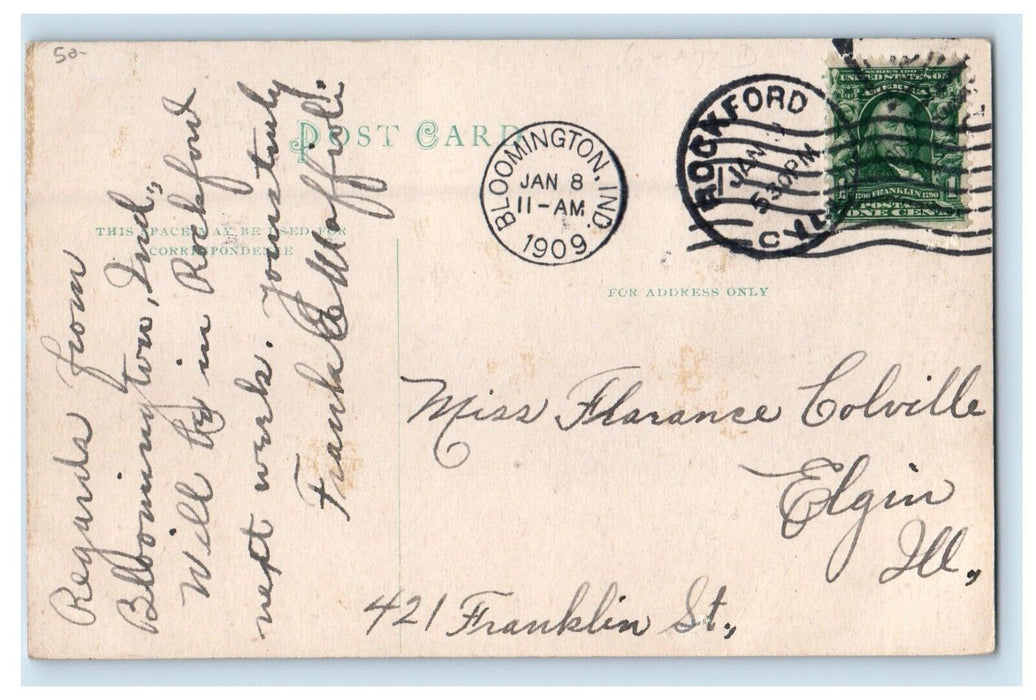 50-
POST CARD
THIS SPACE MAY BE USED FOR
CORRESPONDENCE
Regards from
Bloomington, Ind.,
Will be in Rockford
next week. Yours truly
Frank E
BLOOMINGTON, IND.
JAN 8
11-AM
1909
ROCKFORD
JAN
530PM
SERIES 190
UNITED STATES OF
AMERICA
FRANKLIN
POSTA
ONE CENT
FOR ADDRESS ONLY
Miss Florance Colville
Elgin
Ill.,
421 Franklin St.,